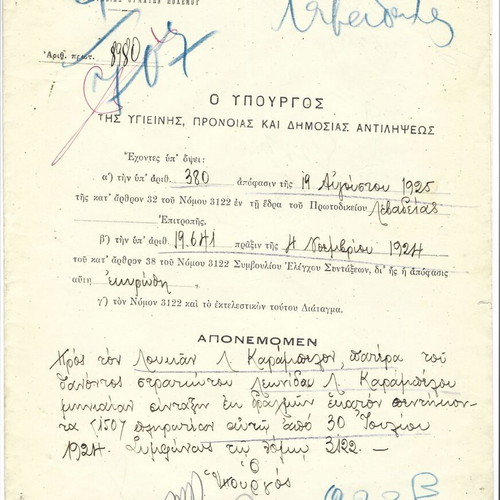 Ἀριθ. πρωτ. 8980
Ο ΥΠΟΥΡΓΟΣ
ΤΗΣ ΥΓΙΕΙΝΗΣ, ΠΡΟΝΟΙΑΣ ΚΑΙ ΔΗΜΟΣΙΑΣ ΑΝΤΙΛΗΨΕΩΣ
Ἔχοντες ὑπ' ὄψει:
α') τὴν ὑπ' ἀριθ. 380 ἀπόφασιν τῆς 19 Αὐγούστου 1925
τῆς κατ' ἄρθρον 32 τοῦ Νόμου 3122 ἐν τῇ ἕδρᾳ τοῦ Πρωτοδικείου Λεβαδείας
Ἐπιτροπῆς.
β') τὴν ὑπ' ἀριθ. 19.641 πρᾶξιν τῆς 4 Νοεμβρίου 1924
τοῦ κατ' ἄρθρον 38 τοῦ Νόμου 3122 Συμβουλίου Ἐλέγχου Συντάξεων, δι' ἧς ἡ ἀπόφασις
αὕτη ἐκυρώθη
γ') τὸν Νόμον 3122 καὶ τὸ ἐκτελεστικὸν τούτου Διάταγμα.
ΑΠΟΝΕΜΟΜΕΝ
Πρὸς τὸν Λουκᾶν Λ. Καράμπελον, πατέρα τοῦ
θανόντος στρατιώτου Λεωνίδου Λ. Καραμπέλου
μηνιαίαν σύνταξιν ἐκ δραχμῶν ἑκατὸν πεντήκον-
τα (150) πληρωτέαν αὐτῷ ἀπὸ 30 Ἰουλίου
1924. Συμφώνως τῷ νόμῳ 3122. —
Ὁ
Ὑπουργός